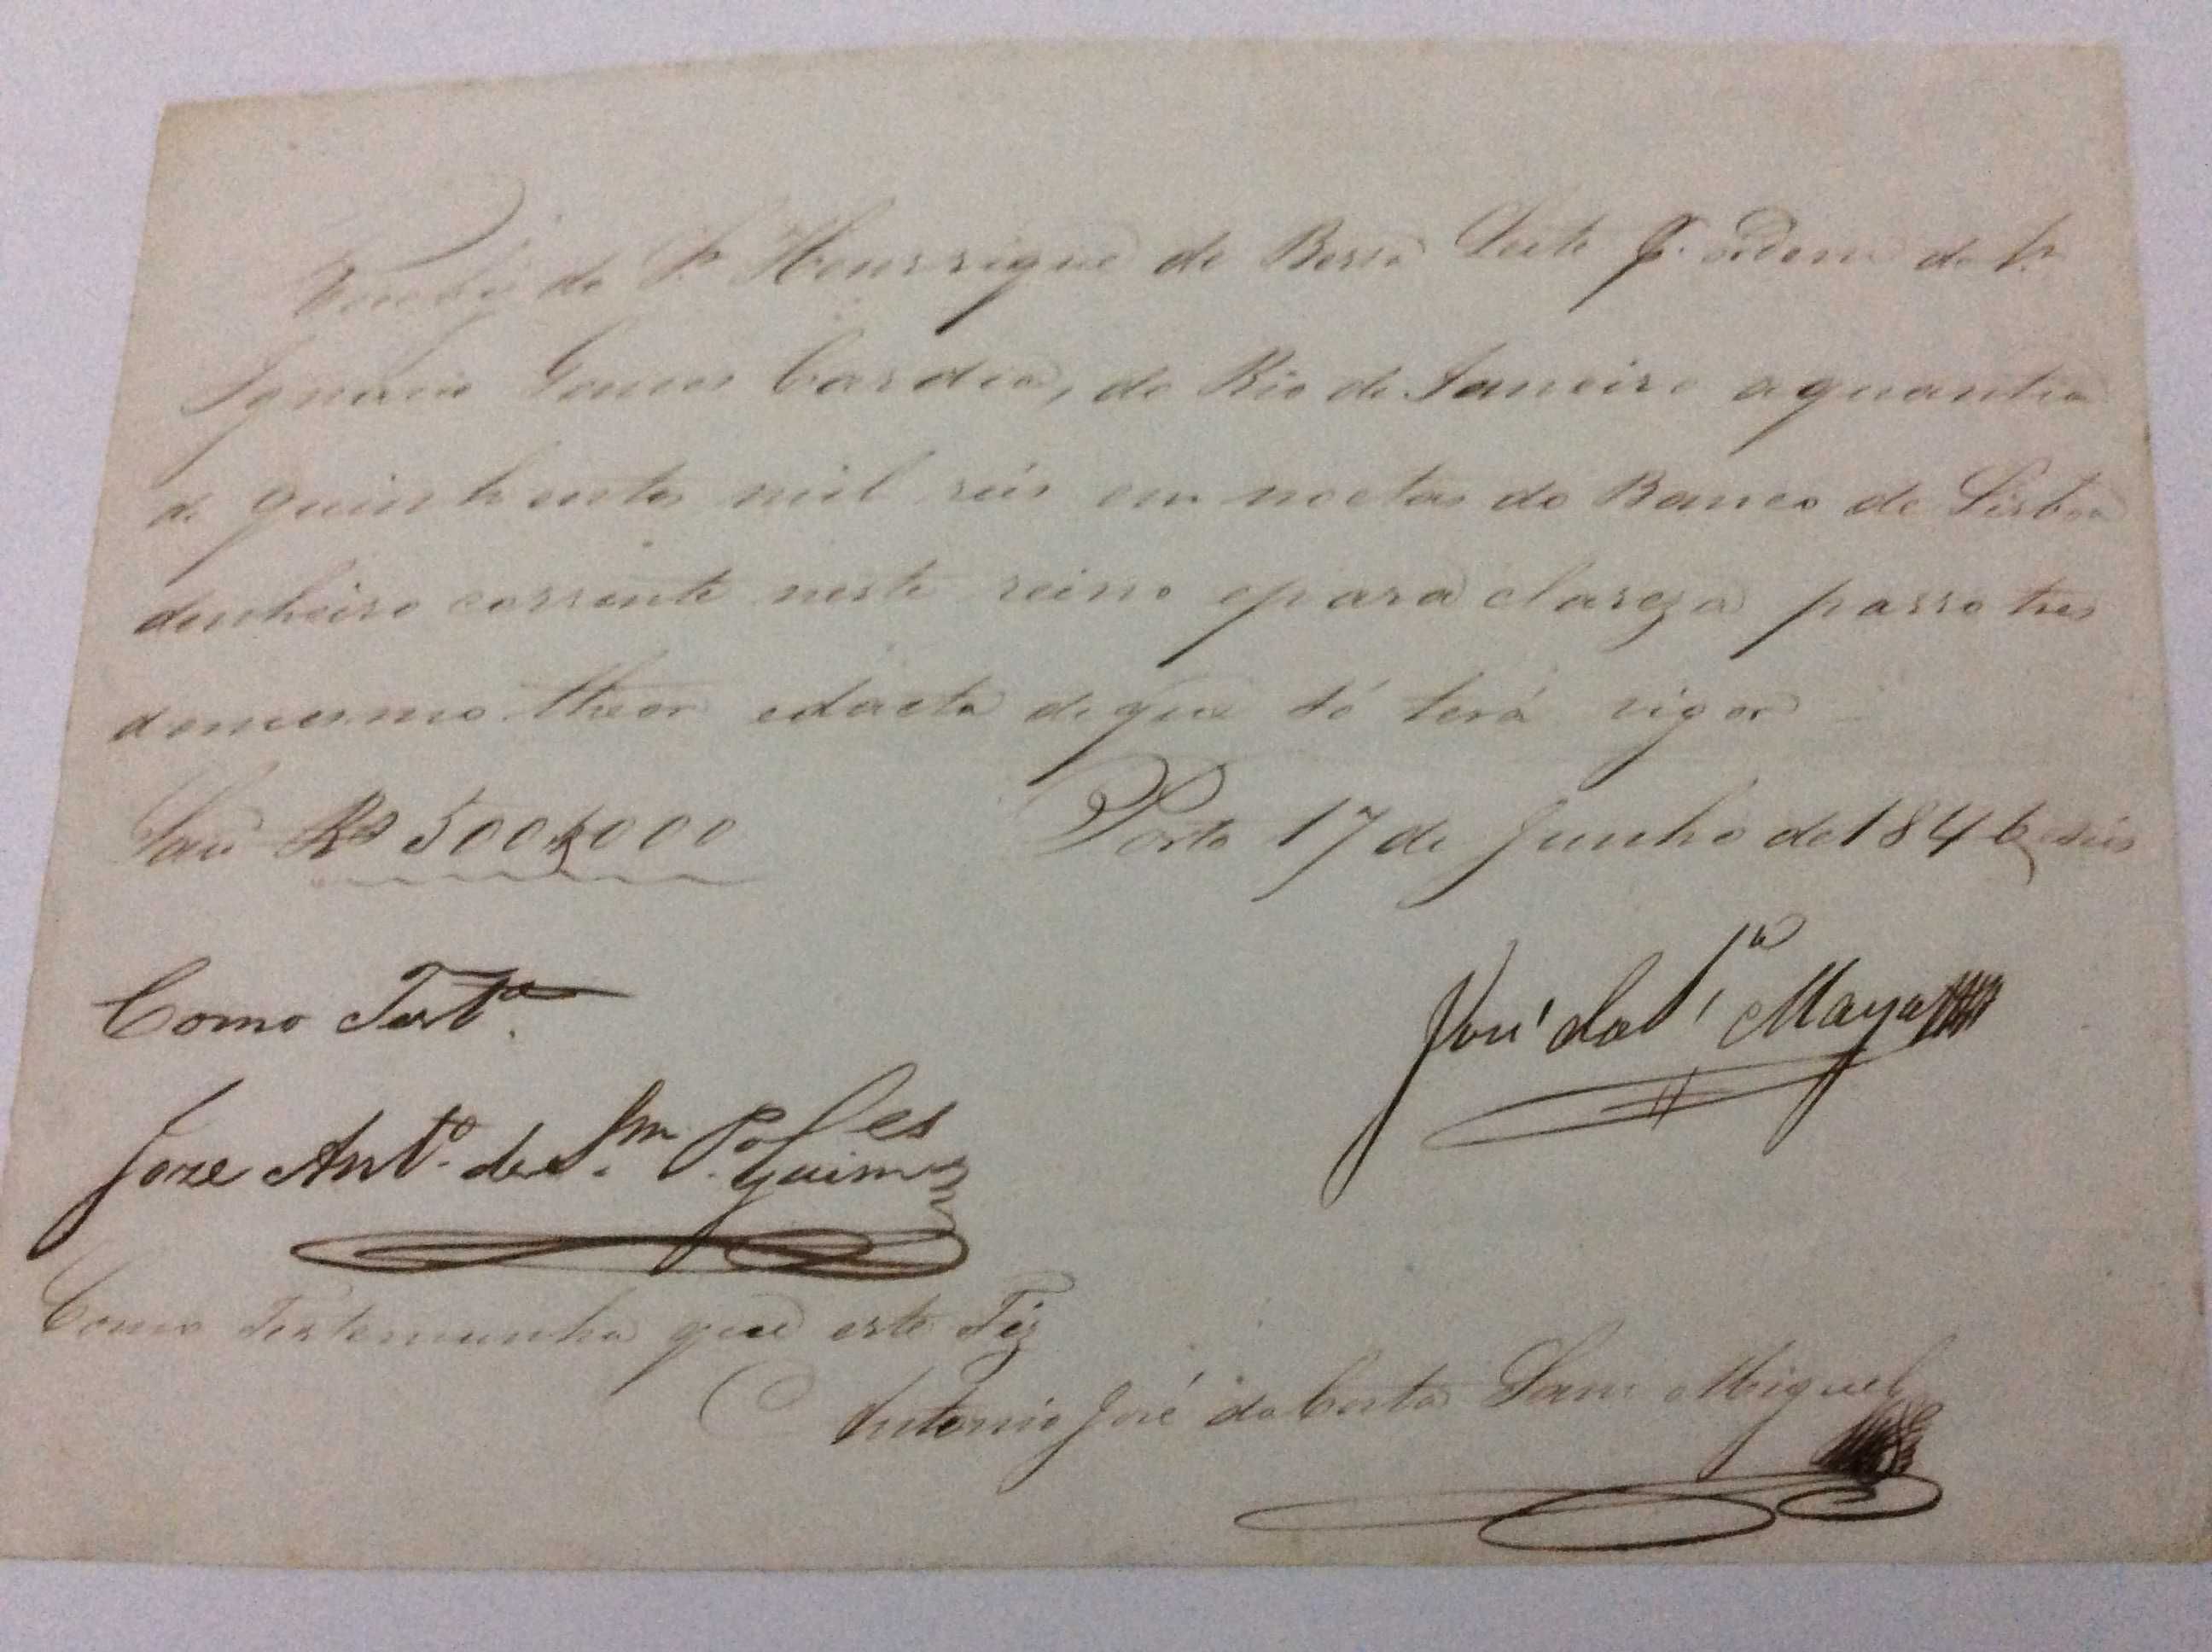 Recebi do Sr. Henrrique de Bessa Leite P. ordem do Sr.
Ignacio Gomes Cardia, do Rio de Janeiro aquantia
de quinhentos mil réis em noctas do Banco de Lisboa
dinheiro corrente neste reino epara clareza passo tres
domesmo theor edacta deque só terá vigor
São Rs 500$000 Porto 17 de Junho de 1846 seis
Como Test.ª
José da S.ª Maya
Joze Ant.º de S.m P.º Guim.es
Como Testemunha que este Fiz
Antonio José da Costa Sam Miguel